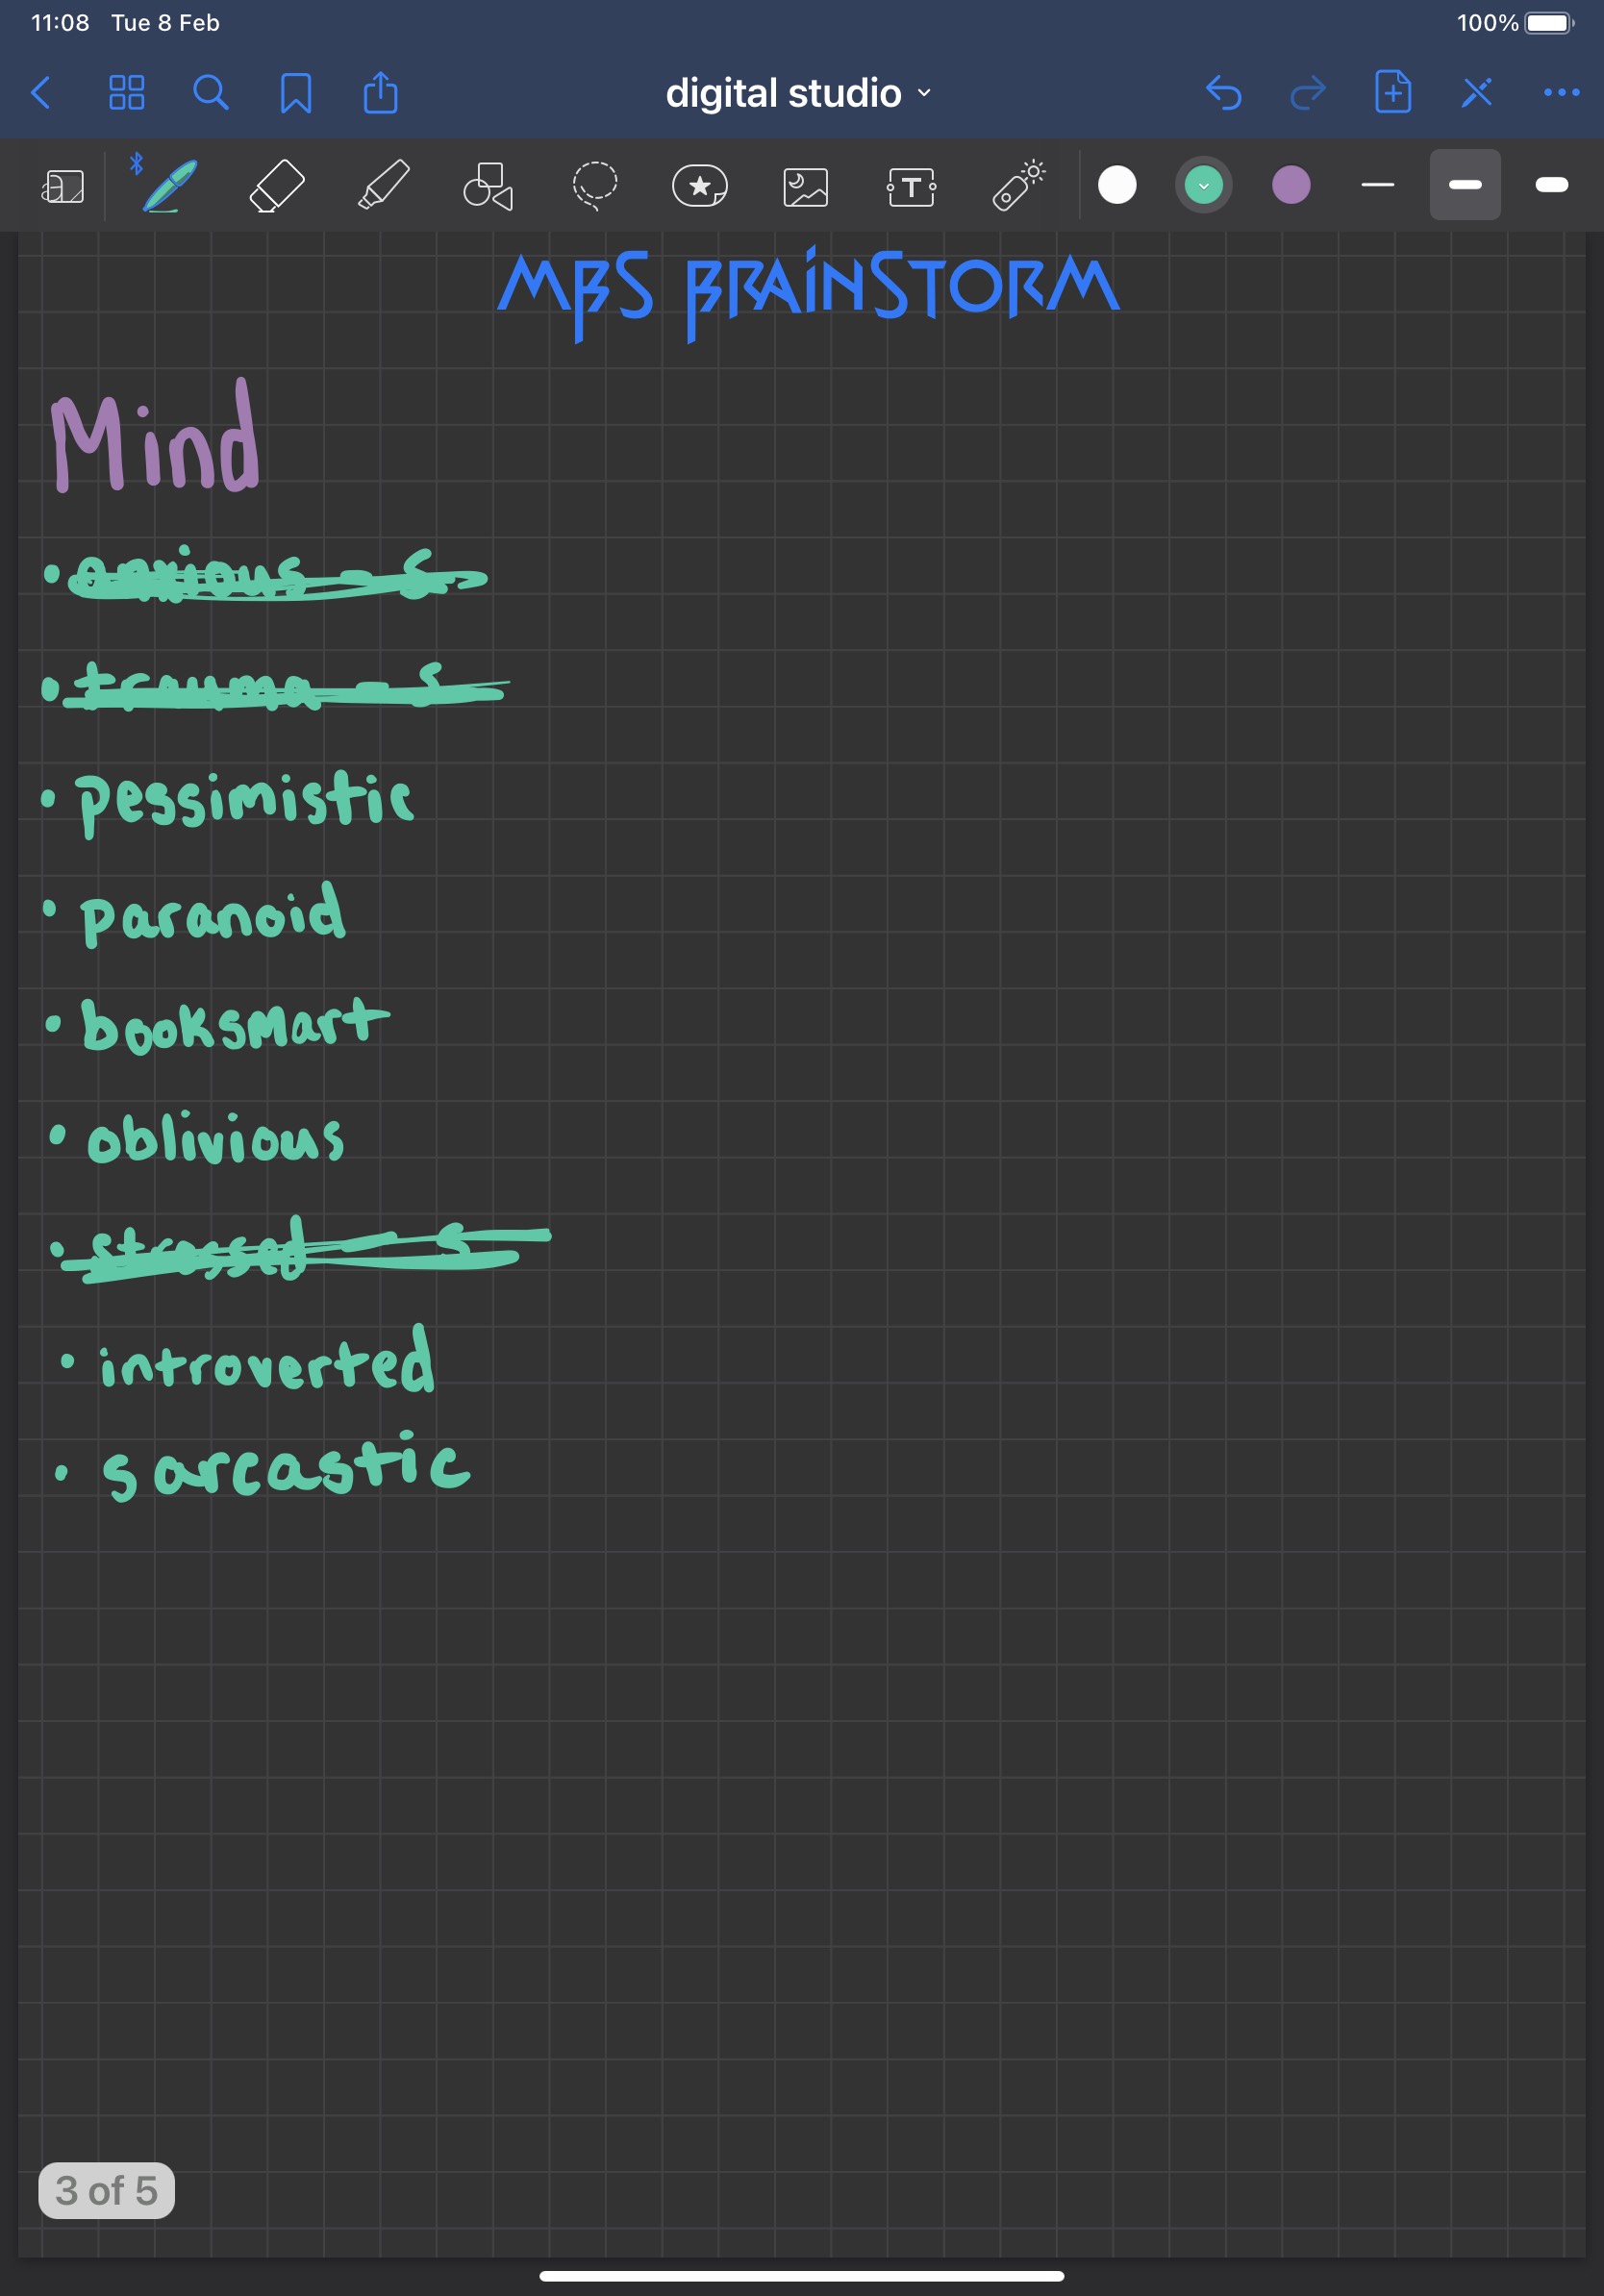 11:08 Tue 8 Feb 100%
digital studio
T
MBS BRAINSTORM
Mind
• anxious - S
• trauma - S
• pessimistic
• paranoid
• booksmart
• oblivious
• stressed - S
• introverted
• sarcastic
3 of 5